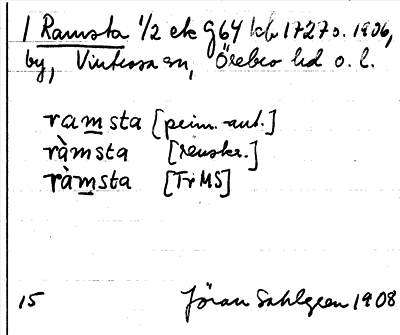 1 Ramsta 1/2 ek g64 kb 1727 o. 1906,
by, Vintrosa sn, Örebro hd o. l.
ramsta [prim.-ant.]
ràmsta [renskr.]
ràmsta [TrMS]
15 Jöran Sahlgren 1908